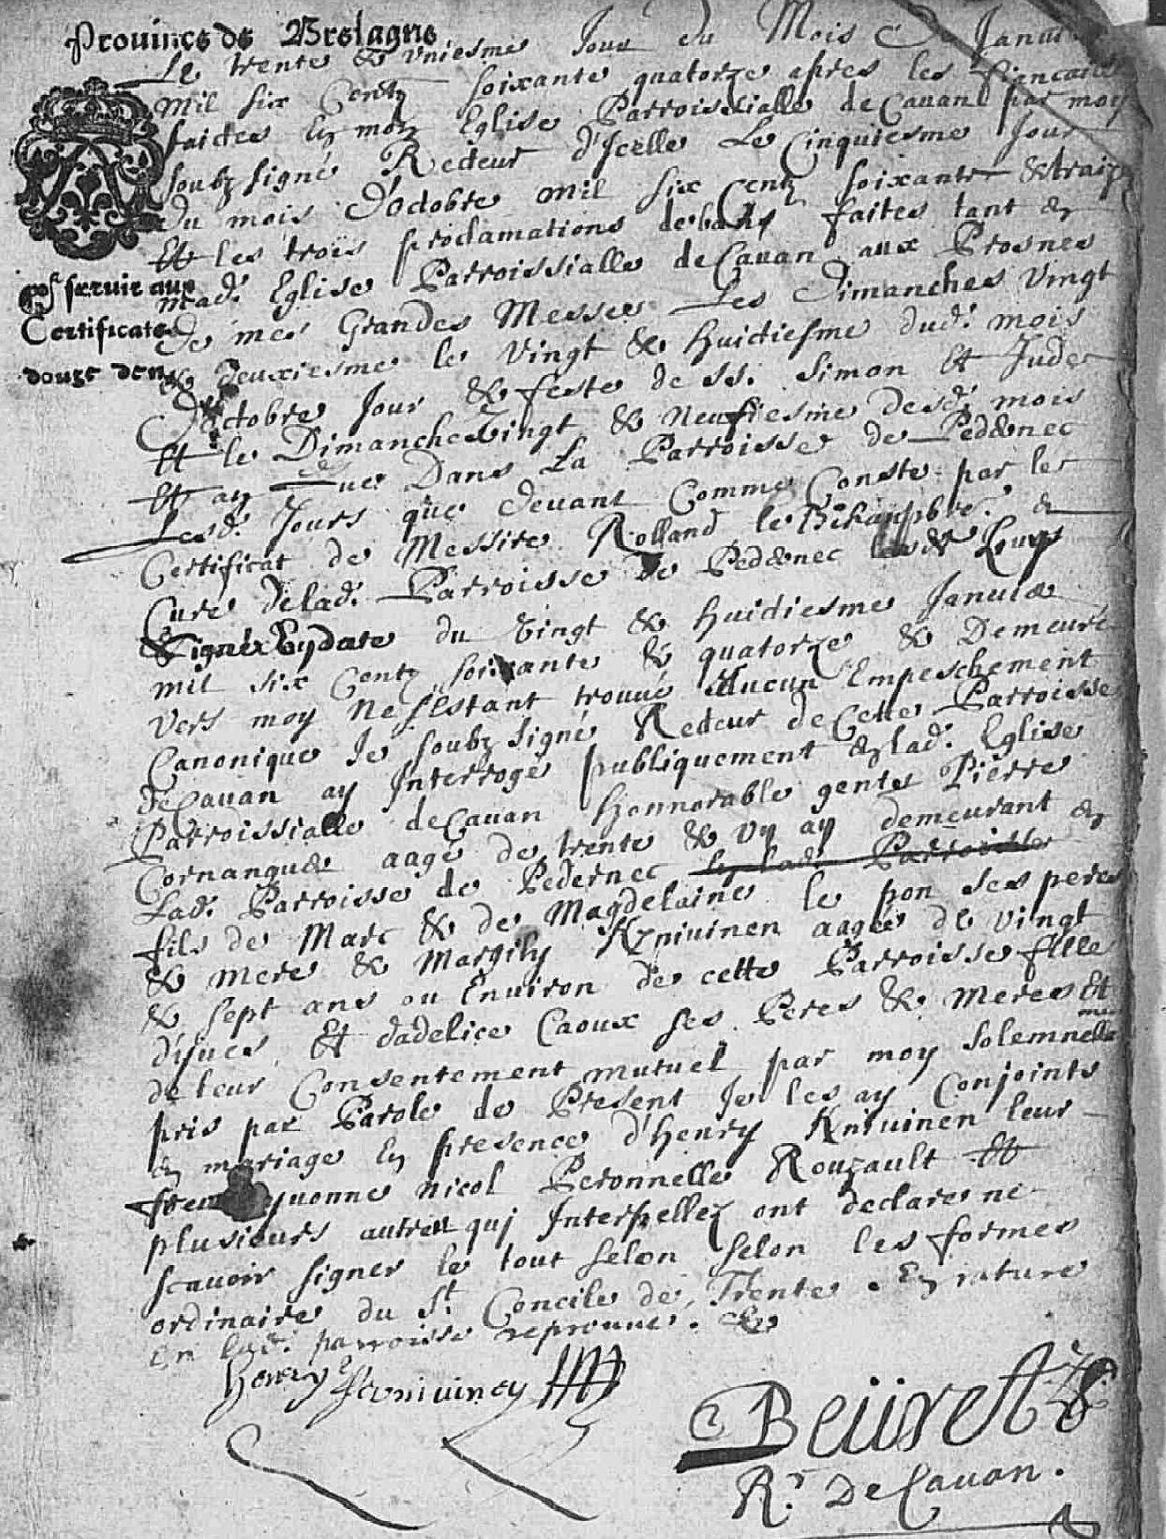 Prouince de Bretagne
Le trente & vniesme Jour du Mois De Januier
mil six Centz soixante quatorze apres les fiancailles
faictes En mon Eglise Parroissialle de Cauan par moy
soubz signé Recteur d'Icelle Le Cinquiesme Jour
Du mois D'octobre mil six Centz soixante & traize
Et les trois proclamations de bans faites tant en
mad. Eglise Parroissialle de Cauan aux Prosnes
De mes Grandes Messes Les Dimanches vingt
& deuxiesme le vingt & huictiesme dud. mois
D'octobre Jour & feste de SS. Simon Et Jude
Et le Dimanche vingt & neufiesme desd. mois
Et an que Dans La Parroisse de Pedernec
Lesd. Jours que deuant Comme Conste par le
Certificat de Messire Rolland le
Curé delad. Parroisse de Pedernec
Signé En date du vingt & huictiesme Januier
mil six Centz soixante & quatorze & Demeuré
vers moy ne s'Estant trouué Aucun Empeschement
Canonique Je soubz Signé Recteur de Cette Parroisse
de Cauan ay Interrogé publiquement en lad. Eglise
Parroissialle de Cauan honnorable gents Pierre
Cornanguer aagé de trente & vn an demeurant en
Lad. Parroisse de Pedernec En lad. Parroisse
fils de Marc & de Magdelaine le pon Ses peres
& mere & Margily Kniuinen aagée de vingt
& sept ans ou Enuiron de cette Parroisse fille
d'yues Et dadelice Caoux ses Peres & Meres Et
de leur Consentement mutuel par moy Solemnellement
pris par Parole de Present Je les ay Conjoints
en mariage En presence d'Henry Kniuinen leur
frere yuonne nicol Peronnelle Rouzault Et
plusieurs autres quj Interpellez ont declare ne
scauoir signer le tout selon selon les formes
ordinaire du St. Concile de Trente. En rature
En lad. parroisse reprouué.
Henry Kerniuinen
Beüret
Rr. De Cauan.
pr seruir aux
Certificats
douze den.